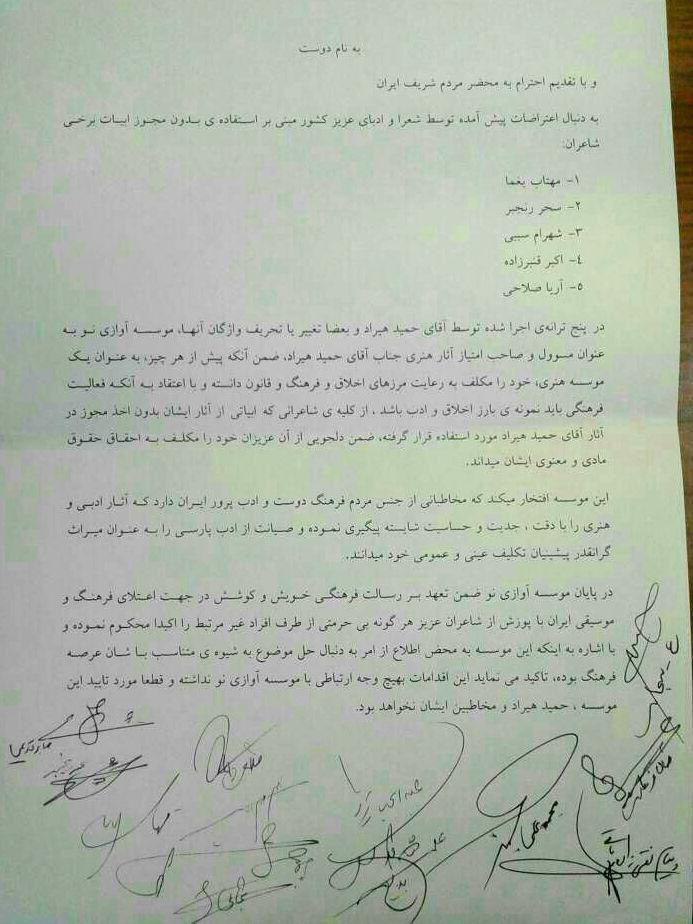 به نام دوست
و با تقدیم احترام به محضر مردم شریف ایران
به دنبال اعتراضات پیش آمده توسط شعرا و ادبای عزیز کشور مبنی بر استفاده ی بدون مجوز ابیات برخی
شاعران:
۱- مهتاب یغما
۲- سحر رنجبر
۳- شهرام سیبی
٤- اکبر قنبرزاده
۵- آریا صلاحی
در پنج ترانه‌ی اجرا شده توسط آقای حمید هیراد و بعضا تغییر یا تحریف واژگان آنها، موسسه آوازی نو به
عنوان مسوول و صاحب امتیاز آثار هنری جناب آقای حمید هیراد، ضمن آنکه پیش از هر چیز، به عنوان یک
موسسه هنری، خود را مکلف به رعایت مرزهای اخلاق و فرهنگ و قانون دانسته و با اعتقاد به آنکه فعالیت
فرهنگی باید نمونه ی بارز اخلاق و ادب باشد ، از کلیه ی شاعرانی که ابیاتی از آثار ایشان بدون اخذ مجوز در
آثار آقای حمید هیراد مورد استفاده قرار گرفته، ضمن دلجویی از آن عزیزان خود را مکلف به احقاق حقوق
مادی و معنوی ایشان میداند.
این موسسه افتخار میکند که مخاطبانی از جنس مردم فرهنگ دوست و ادب پرور ایران دارد که آثار ادبی و
هنری را با دقت ، جدیت و حساسیت شایسته پیگیری نموده و صیانت از ادب پارسی را به عنوان میراث
گرانقدر پیشینیان تکلیف عینی و عمومی خود میدانند.
در پایان موسسه آوازی نو ضمن تعهد بر رسالت فرهنگی خویش و کوشش در جهت اعتلای فرهنگ و
موسیقی ایران با پوزش از شاعران عزیز هر گونه بی حرمتی از طرف افراد غیر مرتبط را اکیدا محکوم نموده و
با اشاره به اینکه این موسسه به محض اطلاع از امر به دنبال حل موضوع به شیوه ی متناسب با شان عرصه
فرهنگ بوده، تاکید می نماید این اقدامات بهیچ وجه ارتباطی با موسسه آوازی نو نداشته و قطعا مورد تایید این
موسسه ، حمید هیراد و مخاطبین ایشان نخواهد بود.